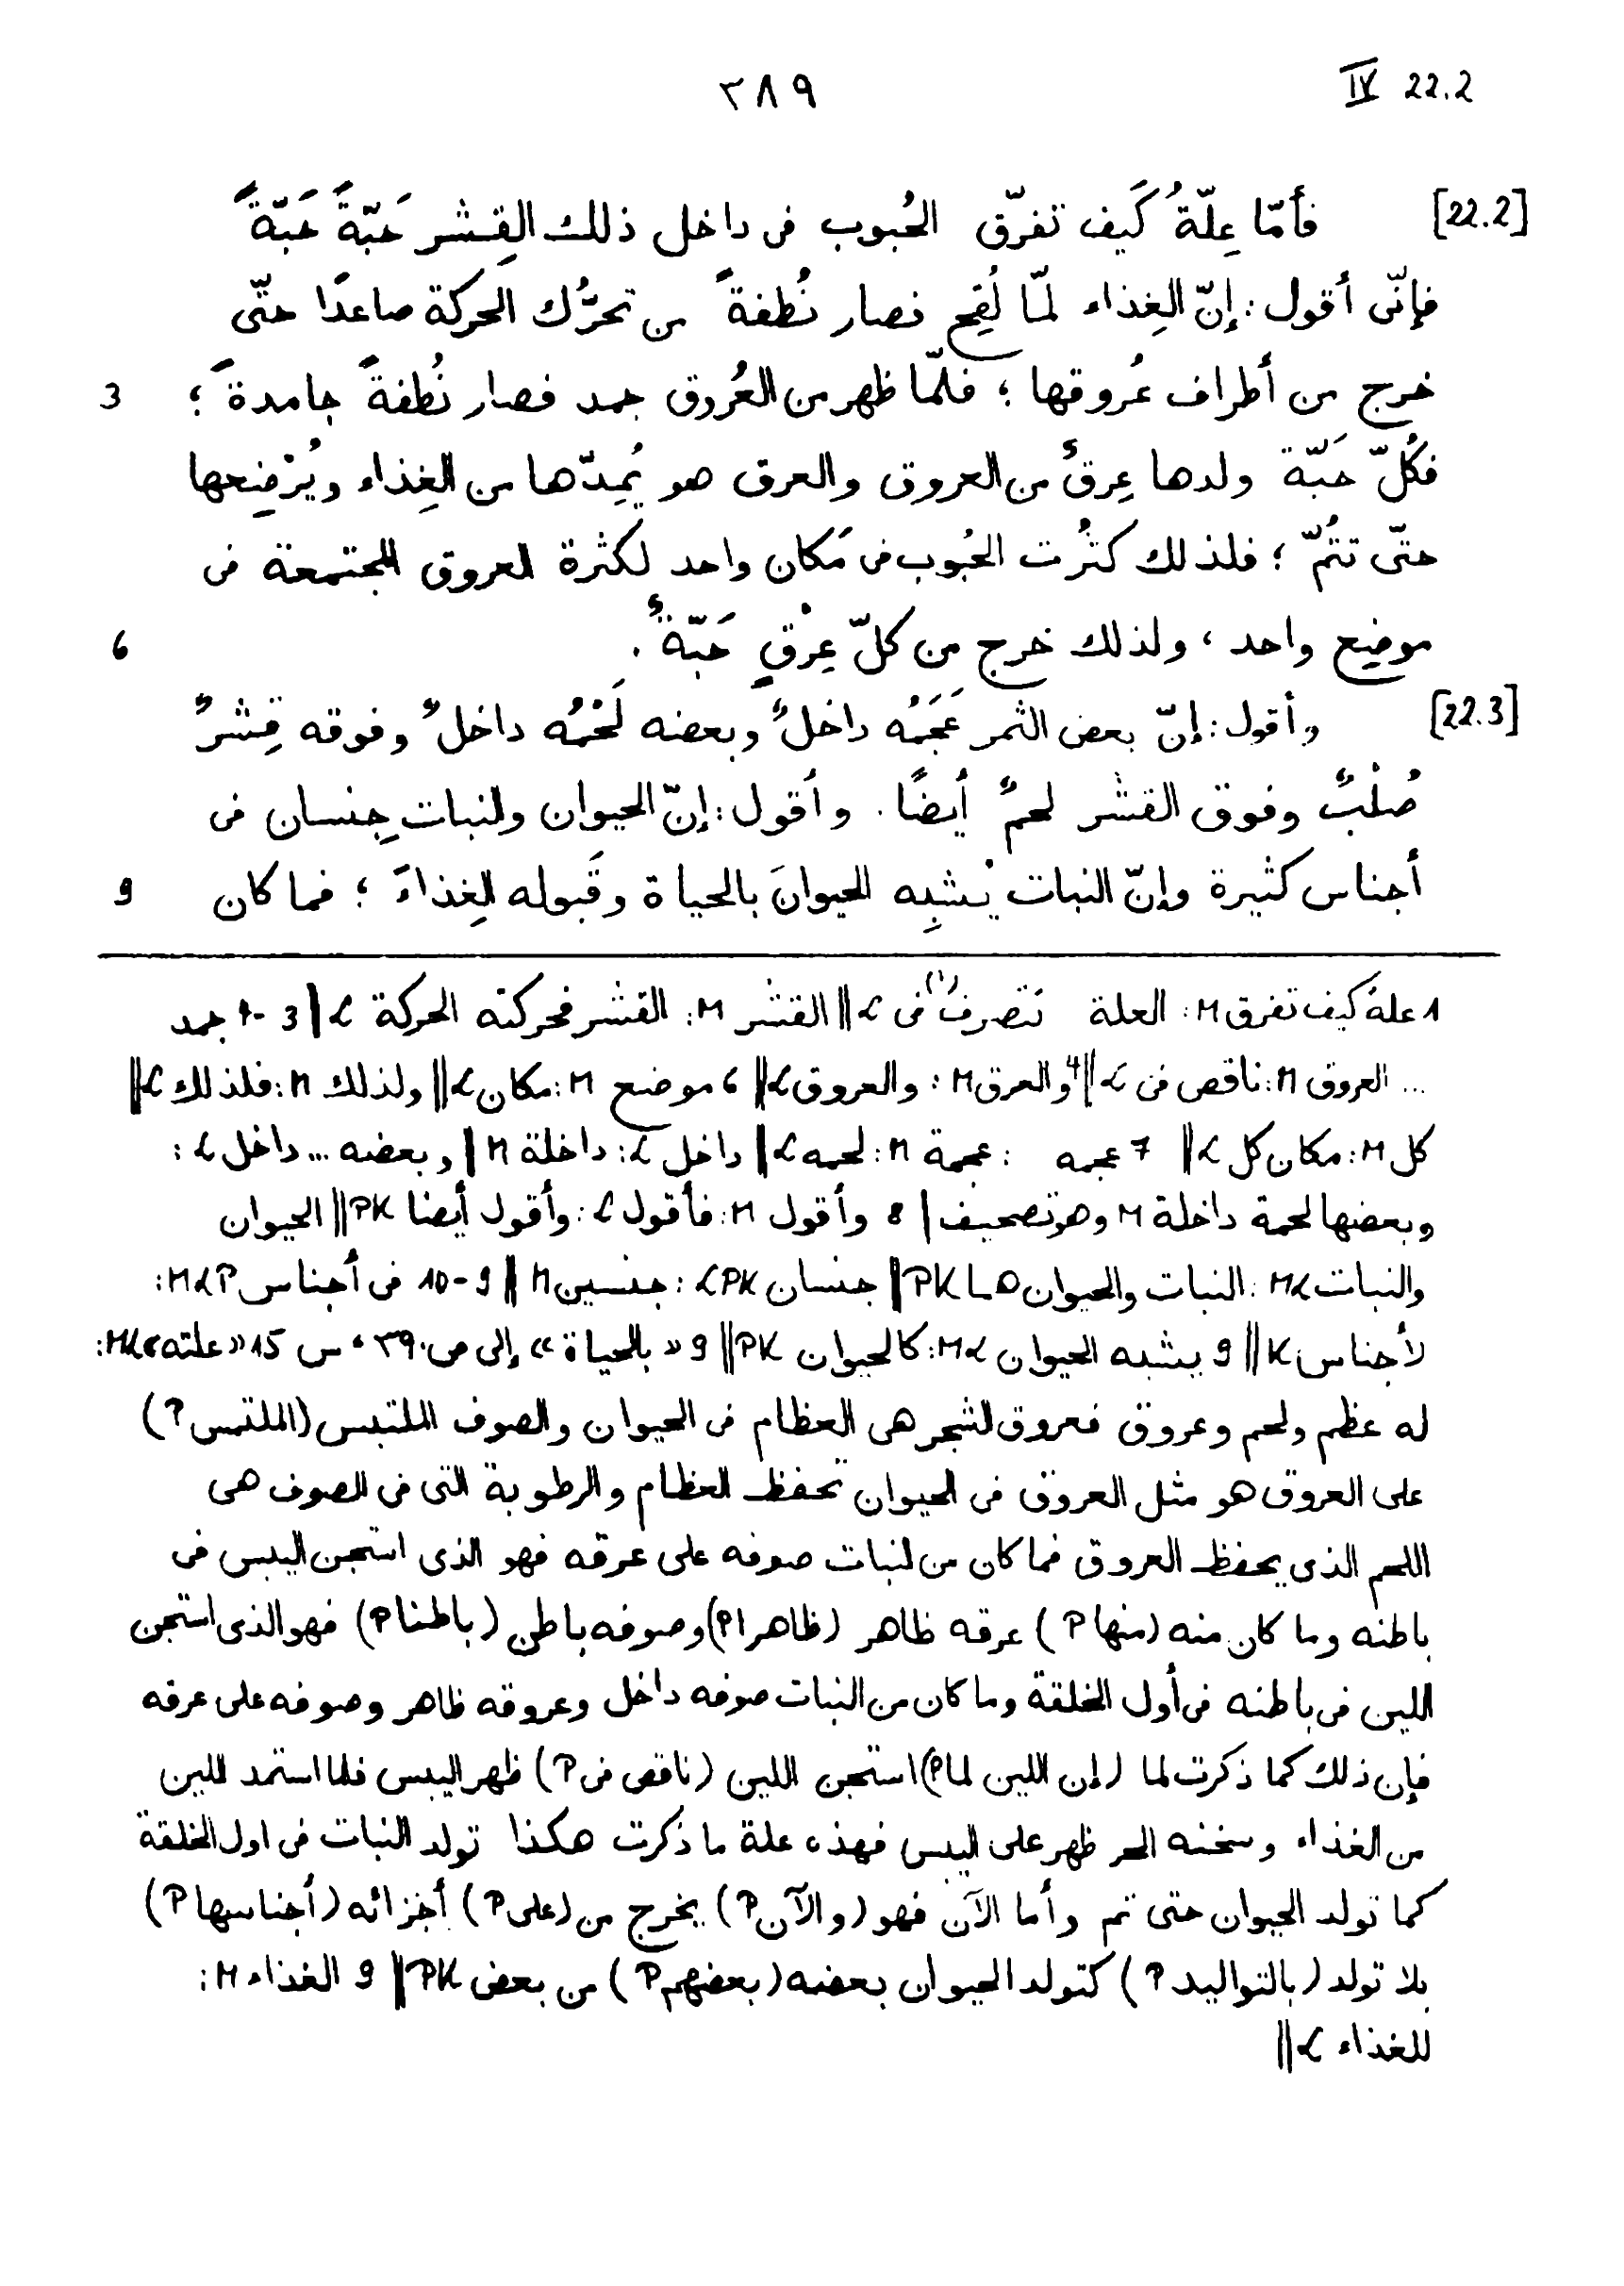 ٣٨٩ IV 22.2
[22.2] فأمّا عِلّةُ كَيف تفرّق الحُبوب فى داخل ذلك القِشر حَبّةً حَبّةً
فإنّى أقول: إنّ الغِذاء لمّا لُقِح فصار نُطفةً من تحرُّك الحركة صاعدًا حتّى
خرج من أطراف عُروقها؛ فلمّا ظهر من العُروق جمد فصار نُطفةً جامدةً؛ 3
فكُلّ حَبّة ولدها عِرقٌ من العروق والعرق هو يُمِدّها من الغِذاء ويُرْضِعها
حتّى تتُمّ؛ فلذلك كثُرت الحُبوب فى مَكان واحد لكثرة العروق المجتمعة فى
موضِع واحد، ولذلك خرج من كلّ عِرْقٍ حَبّةٌ. 6
[22.3] وأقول: إنّ بعض الثمر عَجَمُه داخلٌ وبعضه لَحْمُه داخلٌ وفوقه قِشرٌ
صُلْبٌ وفوق القشر لحمٌ أيضًا. وأقول: إنّ الحيوان والنبات جِنسان فى
أجناس كثيرة وإنّ النبات يُشبِه الحيوانَ بالحياة وقَبوله الغِذاءَ؛ فما كان 9
1 علة كيف تفرق M: العلة تتصرف(؟) فى L || القشر M: القشر فحركته الحركة L | 3-4 جمد
... العروق M: ناقص فى L || 4 والعرق M: والعروق L || 6 موضع M: مكان L || ولذلك M: فلذلك L ||
كل M: مكان كل L || 7 عجمه : عجمة M: لحمه L || داخل L: داخلة M || وبعضه ... داخل L:
وبعضها لحمة داخلة M وهو تصحيف | 8 وأقول M: فأقول L: وأقول أيضا PK || الحيوان
والنبات ML: النبات والحيوان PK || جنسان LPK: جنسين M || 9-10 فى أجناس MLP:
لأجناس K || 9 يشبه الحيوان ML: كالحيوان PK || 9 «بالحياة» إلى ص ٣٩٠، س 15 «علته» ML:
له عظم ولحم وعروق فعروق الشجر هى العظام فى الحيوان والصوف الملتبس (الملتمس P)
على العروق هو مثل العروق فى الحيوان تحفظ العظام والرطوبة التى فى الصوف هى
اللحم الذى يحفظ العروق فما كان من النبات صوفه على عرقه فهو الذى استجن اليبس فى
باطنه وما كان منه (منها P) عرقه ظاهر (ظاهرا P) وصوفه باطن (باطنا P) فهو الذى استجن
اللين فى باطنه فى أول الخلقة وما كان من النبات صوفه داخل وعروقه ظاهر وصوفه على عرقه
فإن ذلك كما ذكرت لما (إن اللين لما P) استجن اللين (ناقص فى P) ظهر اليبس فلما استمد اللين
من الغذاء وسخنه الحر ظهر على اليبس فهذه علة ما ذكرت هكذا تولد النبات فى اول الخلقة
كما تولد الحيوان حتى تم وأما الآن فهو (والآن P) يخرج من (على P) أجزائه (أجناسها P)
بلا تولد (بالتواليد P) كتولد الحيوان بعضه (بعضهم P) من بعض PK || 9 الغذاء M:
للغذاء L ||